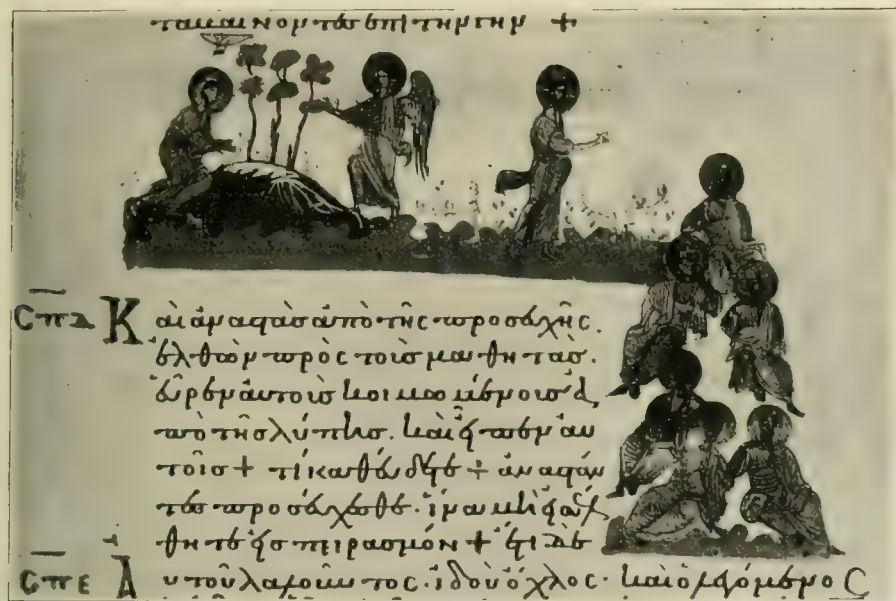 ταβαίνοντες ἐπὶ τὴν γῆν +
σπδ Καὶ ἀναστὰς ἀπὸ τῆς προσευχῆς.
ἐλθὼν πρὸς τοὺς μαθητάς.
εὗρεν αὐτοὺς κοιμωμένους ἀ
πὸ τῆς λύπης. καὶ εἶπεν αὐ
τοῖς + τί καθεύδετε ; ἀναστάν
τες προσεύχεσθε. ἵνα μὴ εἰσέλ
θητε εἰς πειρασμόν + ἔτι δὲ
σπε Αὐτοῦ λαλοῦντος. ἰδοὺ ὄχλος. καὶ ὁ λεγόμενος